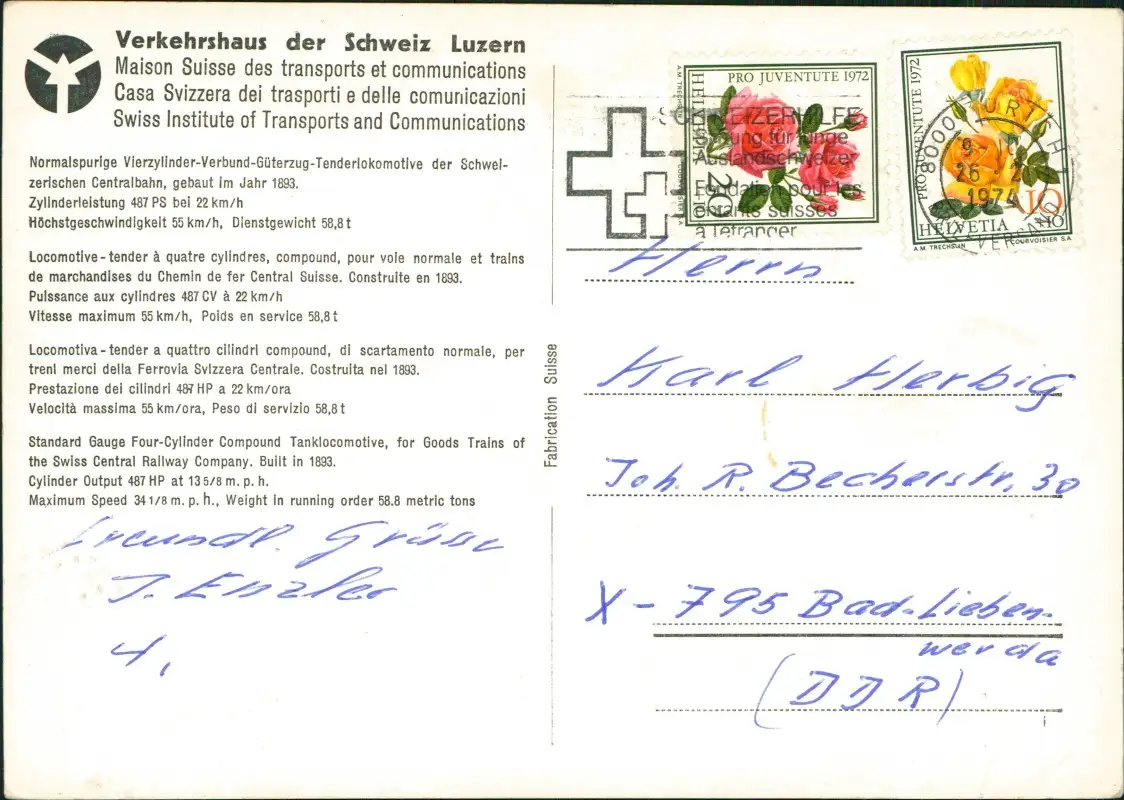 Verkehrshaus der Schweiz Luzern
Maison Suisse des transports et communications
Casa Svizzera dei trasporti e delle comunicazioni
Swiss Institute of Transports and Communications
Normalspurige Vierzylinder-Verbund-Güterzug-Tenderlokomotive der Schwei-
zerischen Centralbahn, gebaut im Jahr 1893.
Zylinderleistung 487 PS bei 22 km/h
Höchstgeschwindigkeit 55 km/h, Dienstgewicht 58,8 t
Locomotive-tender à quatre cylindres, compound, pour voie normale et trains
de marchandises du Chemin de fer Central Suisse. Construite en 1893.
Puissance aux cylindres 487 CV à 22 km/h
Vitesse maximum 55 km/h, Poids en service 58,8 t
Locomotiva-tender a quattro cilindri compound, di scartamento normale, per
treni merci della Ferrovia Svizzera Centrale. Costruita nel 1893.
Prestazione dei cilindri 487 HP a 22 km/ora
Velocità massima 55 km/ora, Peso di servizio 58,8 t
Standard Gauge Four-Cylinder Compound Tanklocomotive, for Goods Trains of
the Swiss Central Railway Company. Built in 1893.
Cylinder Output 487 HP at 13 5/8 m. p. h.
Maximum Speed 34 1/8 m. p. h., Weight in running order 58.8 metric tons
Freundl. Grüsse
J. Enzler
Fabrication Suisse
PRO JUVENTUTE 1972
HELVETIA
20
A.M. TRECHSLIN
PRO JUVENTUTE 1972
10
HELVETIA
A.M. TRECHSLIN COURVOISIER S.A.
SCHWEIZERHILFE
Stiftung für junge
Auslandschweizer
Fondation pour les
enfants suisses
à l'étranger
8000 ZÜRICH
1974
BRIEFVERSAND
Herrn
Karl Herbig
Joh. R. Becherstr. 30
X-795 Bad-Lieben-
werda
(DDR)